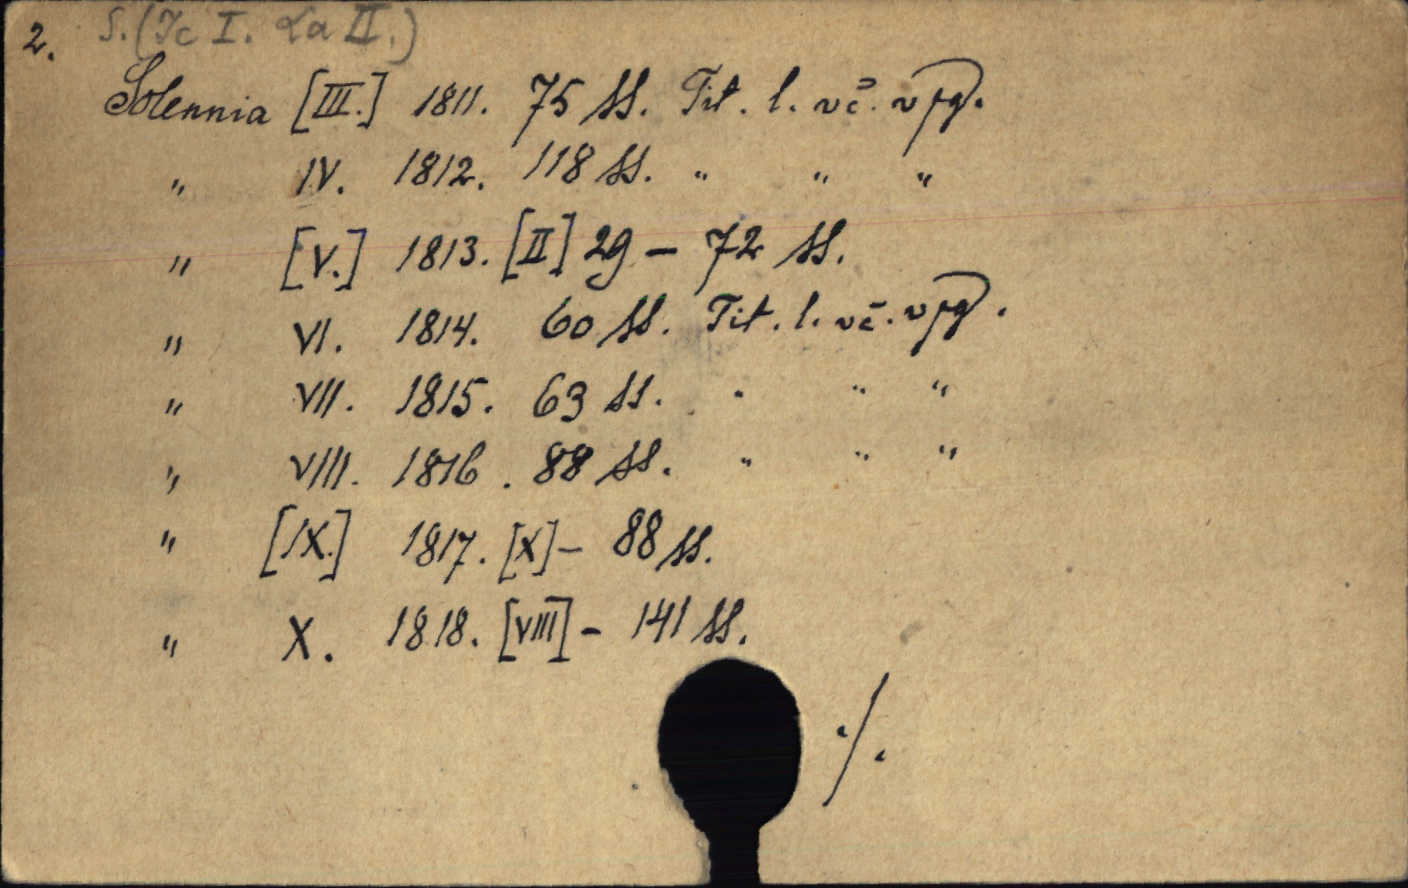 2. S. (Ic I. La II.)
Solennia [III.] 1811. 75 ss. Tit. l. vč. v pg.
" IV. 1812. 118 ss. " " "
" [V.] 1813. [II] 29 – 72 ss.
" VI. 1814. 60 ss. Tit. l. vč. v pg.
" VII. 1815. 63 ss. " " "
" VIII. 1816. 88 ss. " " "
" [IX.] 1817. [X] – 88 ss.
" X. 1818. [VIII] – 141 ss.
./.